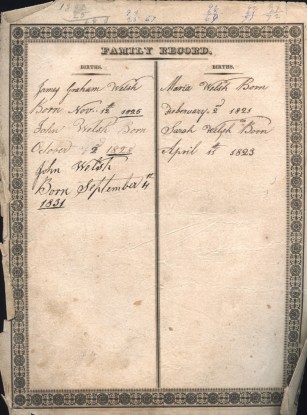 FAMILY RECORD.
BIRTHS.
James Graham Welsh
Born Nov. 12th 1825
John Welsh Born
October 2 1828
John Welsh
Born September 4th
1831
BIRTHS.
Maria Welsh Born
February 2 1821
Sarah Welsh Born
April 11 1823